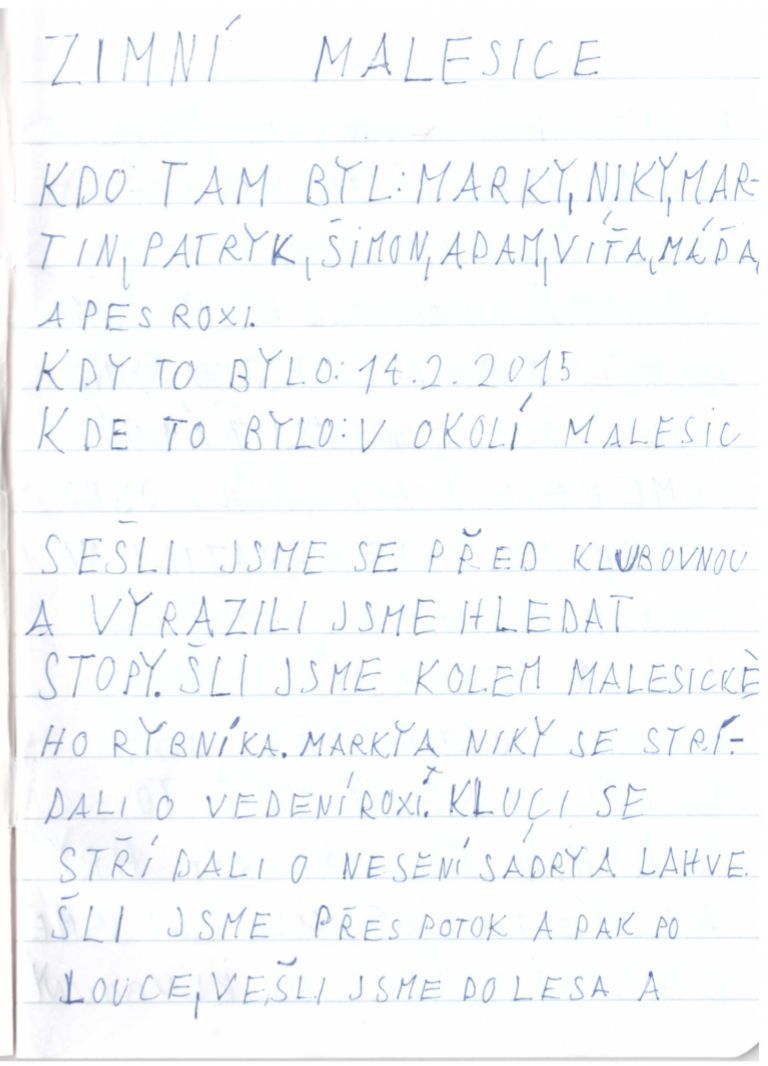 ZIMNÍ MALESICE
KDO TAM BYL: MARKY, NIKY, MAR-
TIN, PATRYK, ŠIMON, ADAM, VÍŤA, MÁĎA,
A PES ROXI.
KDY TO BYLO: 14.2.2015
KDE TO BYLO: V OKOLÍ MALESIC
SEŠLI JSME SE PŘED KLUBOVNOU
A VYRAZILI JSME HLEDAT
STOPY. ŠLI JSME KOLEM MALESICKÉ
HO RYBNÍKA. MARKY A NIKY SE STRÍ-
DALI O VEDENÍ ROXI. KLUCI SE
STŘÍDALI O NESENÍ SÁDRY A LAHVE.
ŠLI JSME PŘES POTOK A PAK PO
LOUCE, VEŠLI JSME DO LESA A